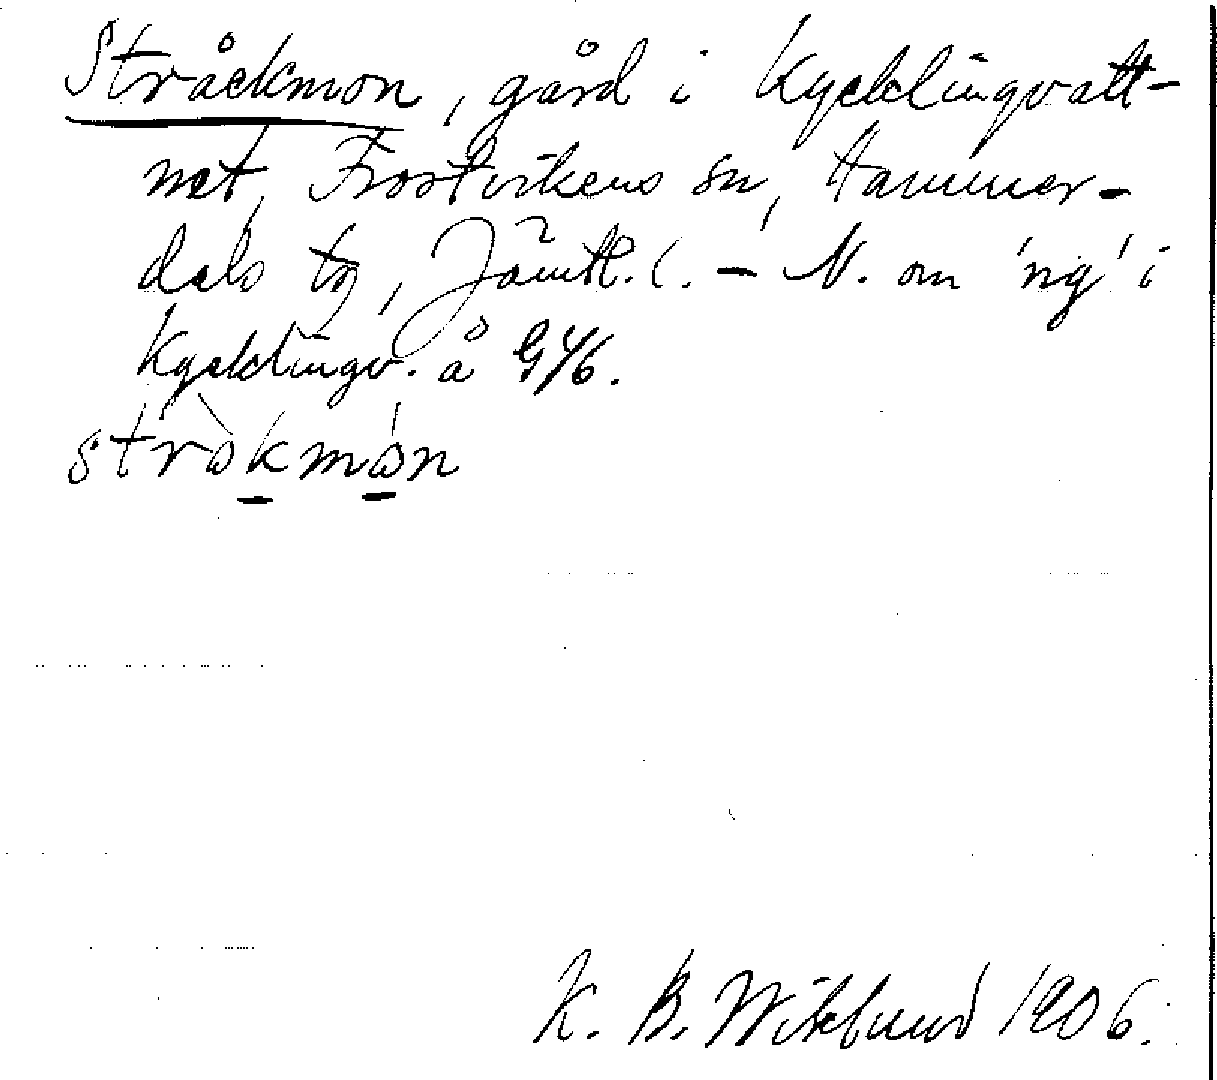 Stråckmon, gård i Kycklingvatt-
net, Frostvikens sn, Hammer-
dals tg, Jämtl. l. – N. om 'ng' i
Kycklingv. å G 4/6.
stròkmón
K. B. Wiklund 1906.